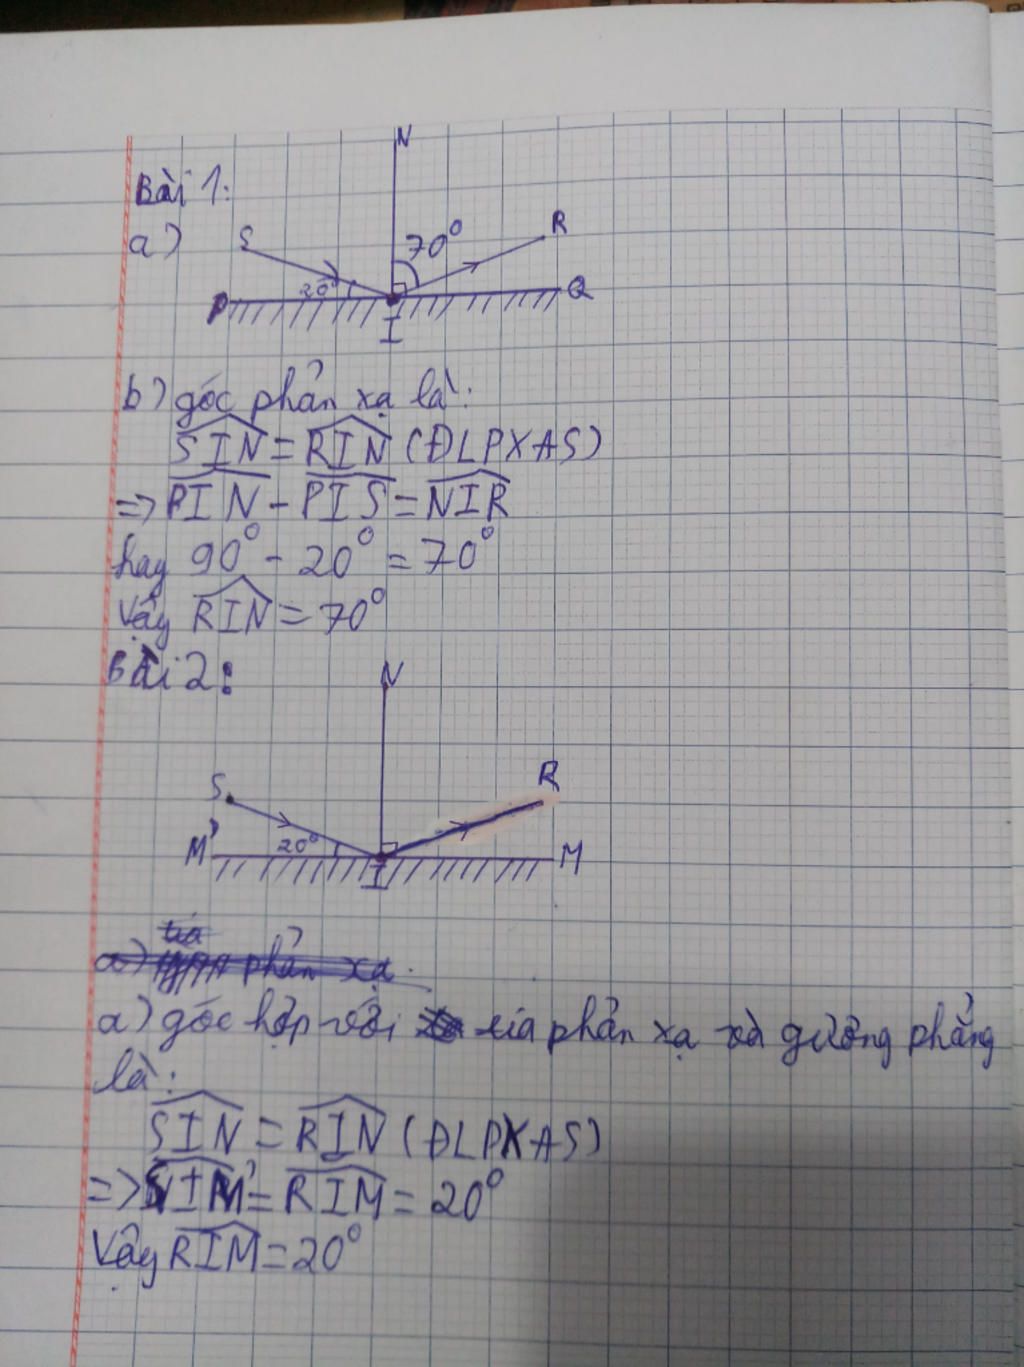 N
Bài 1:
a) S 70° R
20°
P Q
I
b) góc phản xạ là:
SIN = RIN (ĐLPXAS)
=> PIN - PIS = NIR
hay 90° - 20° = 70°
Vậy RIN = 70°
Bài 2:
N
S R
M' 20° M
I
a) tia phản xạ
a) góc hợp với tia phản xạ và gương phẳng
là:
SIN = RIN (ĐLPXAS)
=> SIM' = RIM = 20°
Vậy RIM = 20°